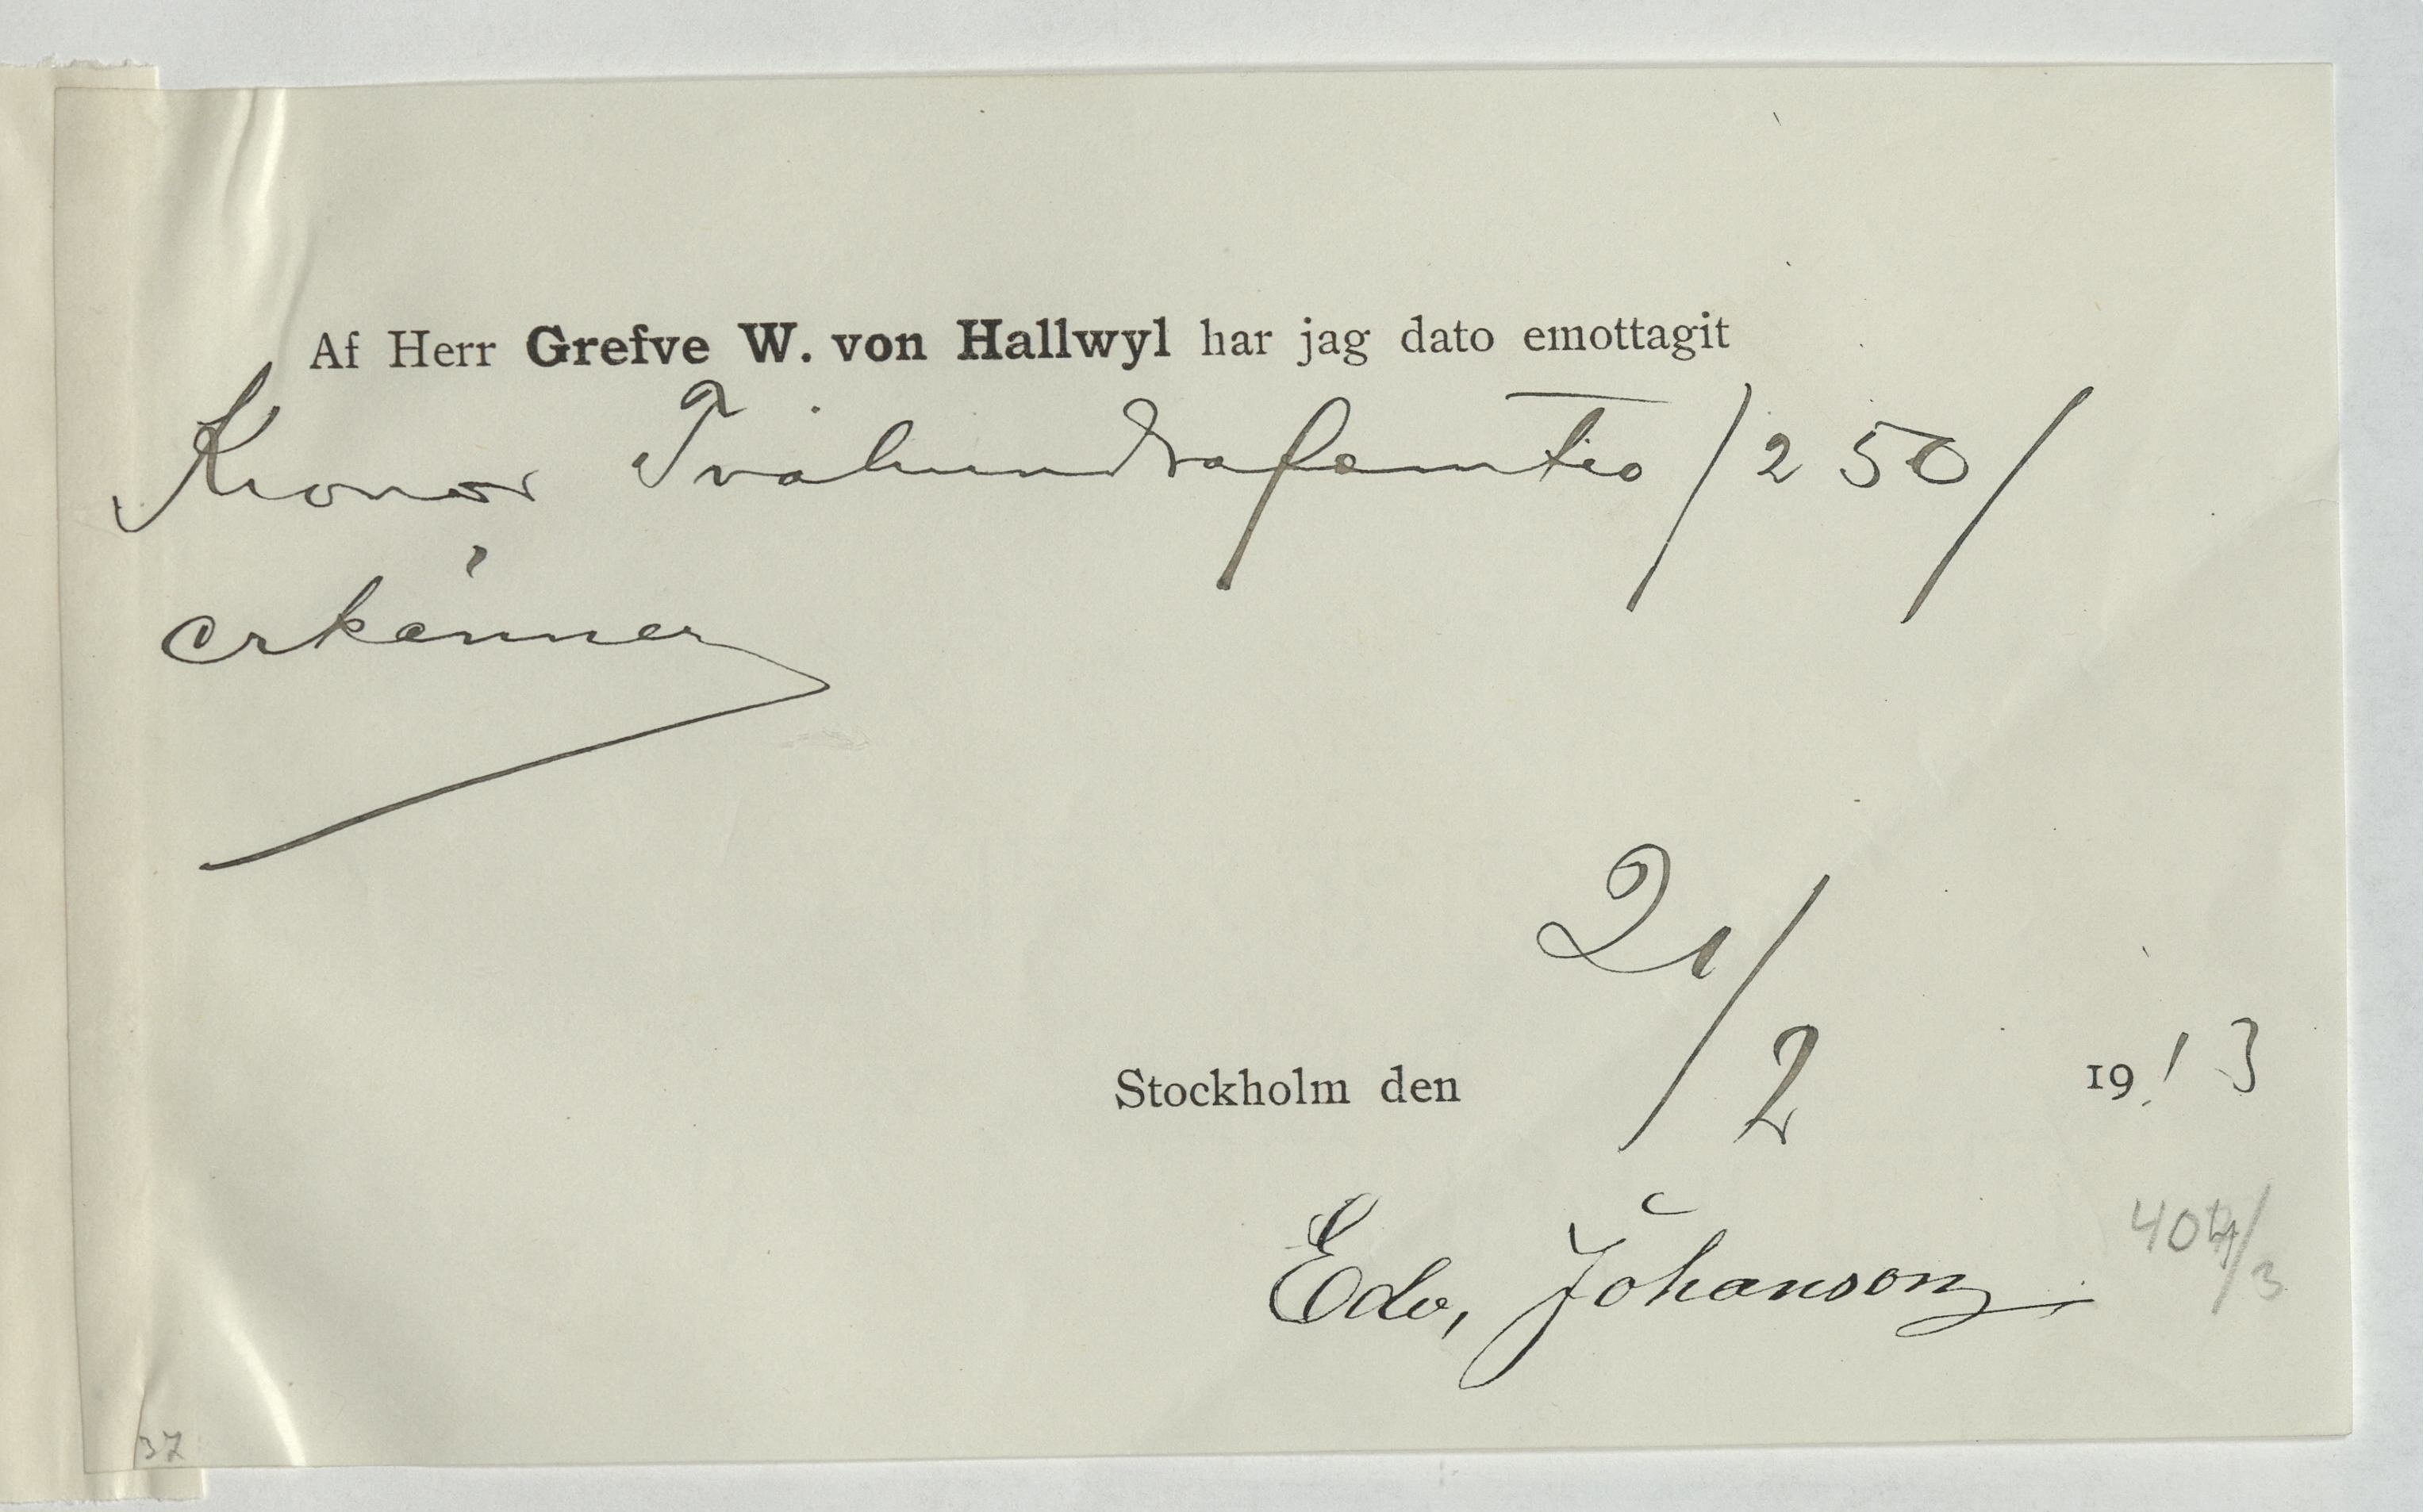 Af Herr Grefve W. von Hallwyl har jag dato emottagit
Kronor Tvåhundrafemtio /250/
erkännes
21/2
Stockholm den 1913
Edv, Johanson
37